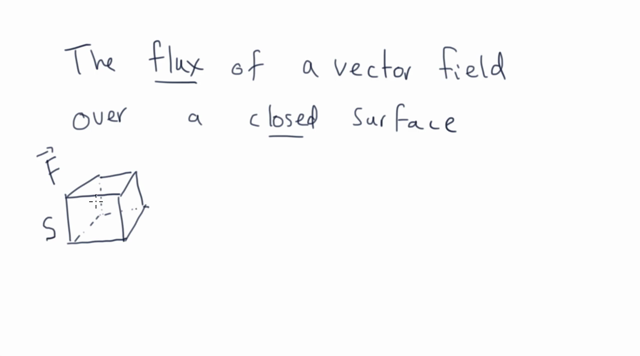 The flux of a vector field
over a closed surface
F
S